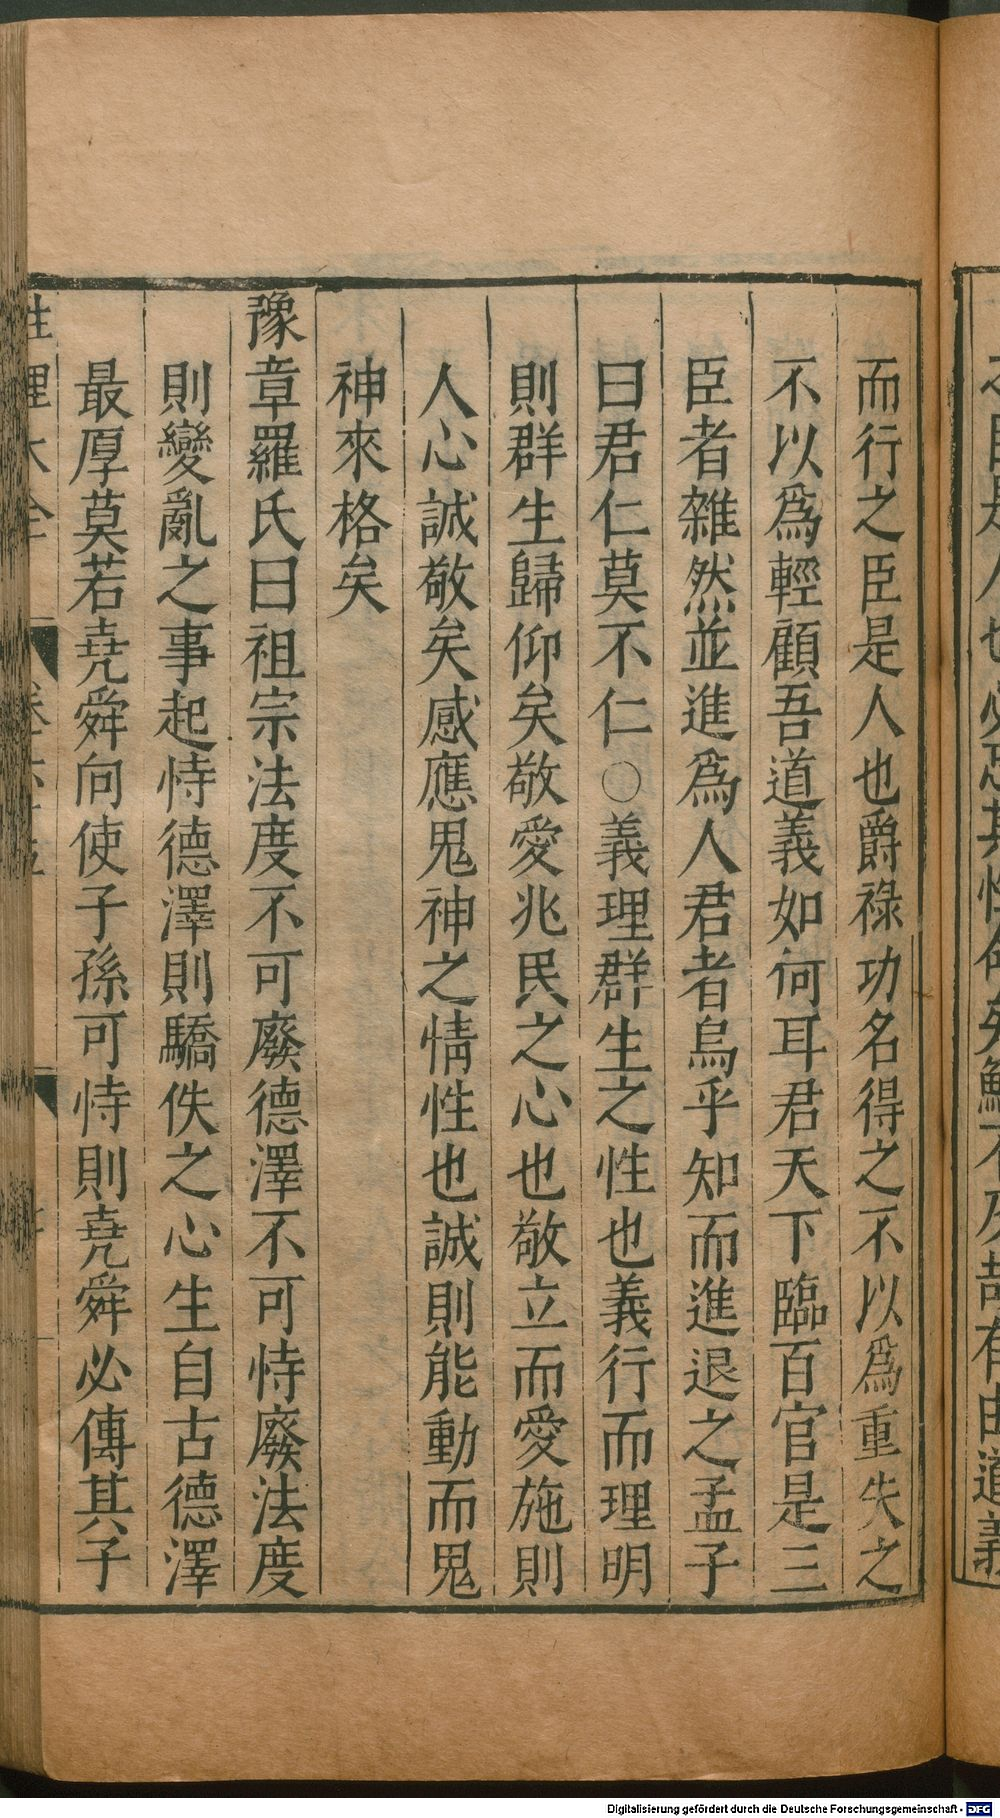 而行之臣是人也爵祿功名得之不以爲重失之
不以爲輕顧吾道義如何耳君天下臨百官是三
臣者雜然並進爲人君者烏乎知而進退之孟子
曰君仁莫不仁○義理群生之性也義行而理明
則群生歸仰矣敬愛兆民之心也敬立而愛施則
人心誠敬矣感應鬼神之情性也誠則能動而鬼
神來格矣
豫章羅氏曰祖宗法度不可廢德澤不可恃廢法度
則變亂之事起恃德澤則驕佚之心生自古德澤
最厚莫若堯舜向使子孫可恃則堯舜必傳其子
性理大全
Digitalisierung gefördert durch die Deutsche Forschungsgemeinschaft - DFG